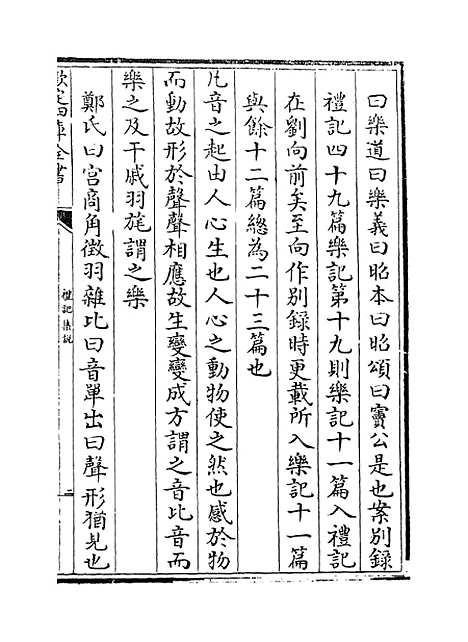 曰樂道曰樂義曰昭本曰昭頌曰竇公是也案別錄
禮記四十九篇樂記第十九則樂記十一篇入禮記
在劉向前矣至向作別錄時更載所入樂記十一篇
與餘十二篇總為二十三篇也
凡音之起由人心生也人心之動物使之然也感於物
而動故形於聲聲相應故生變變成方謂之音比音而
樂之及干戚羽旄謂之樂
鄭氏曰宮商角徵羽雜比曰音單出曰聲形猶見也
欽定四庫全書
禮記集説
二